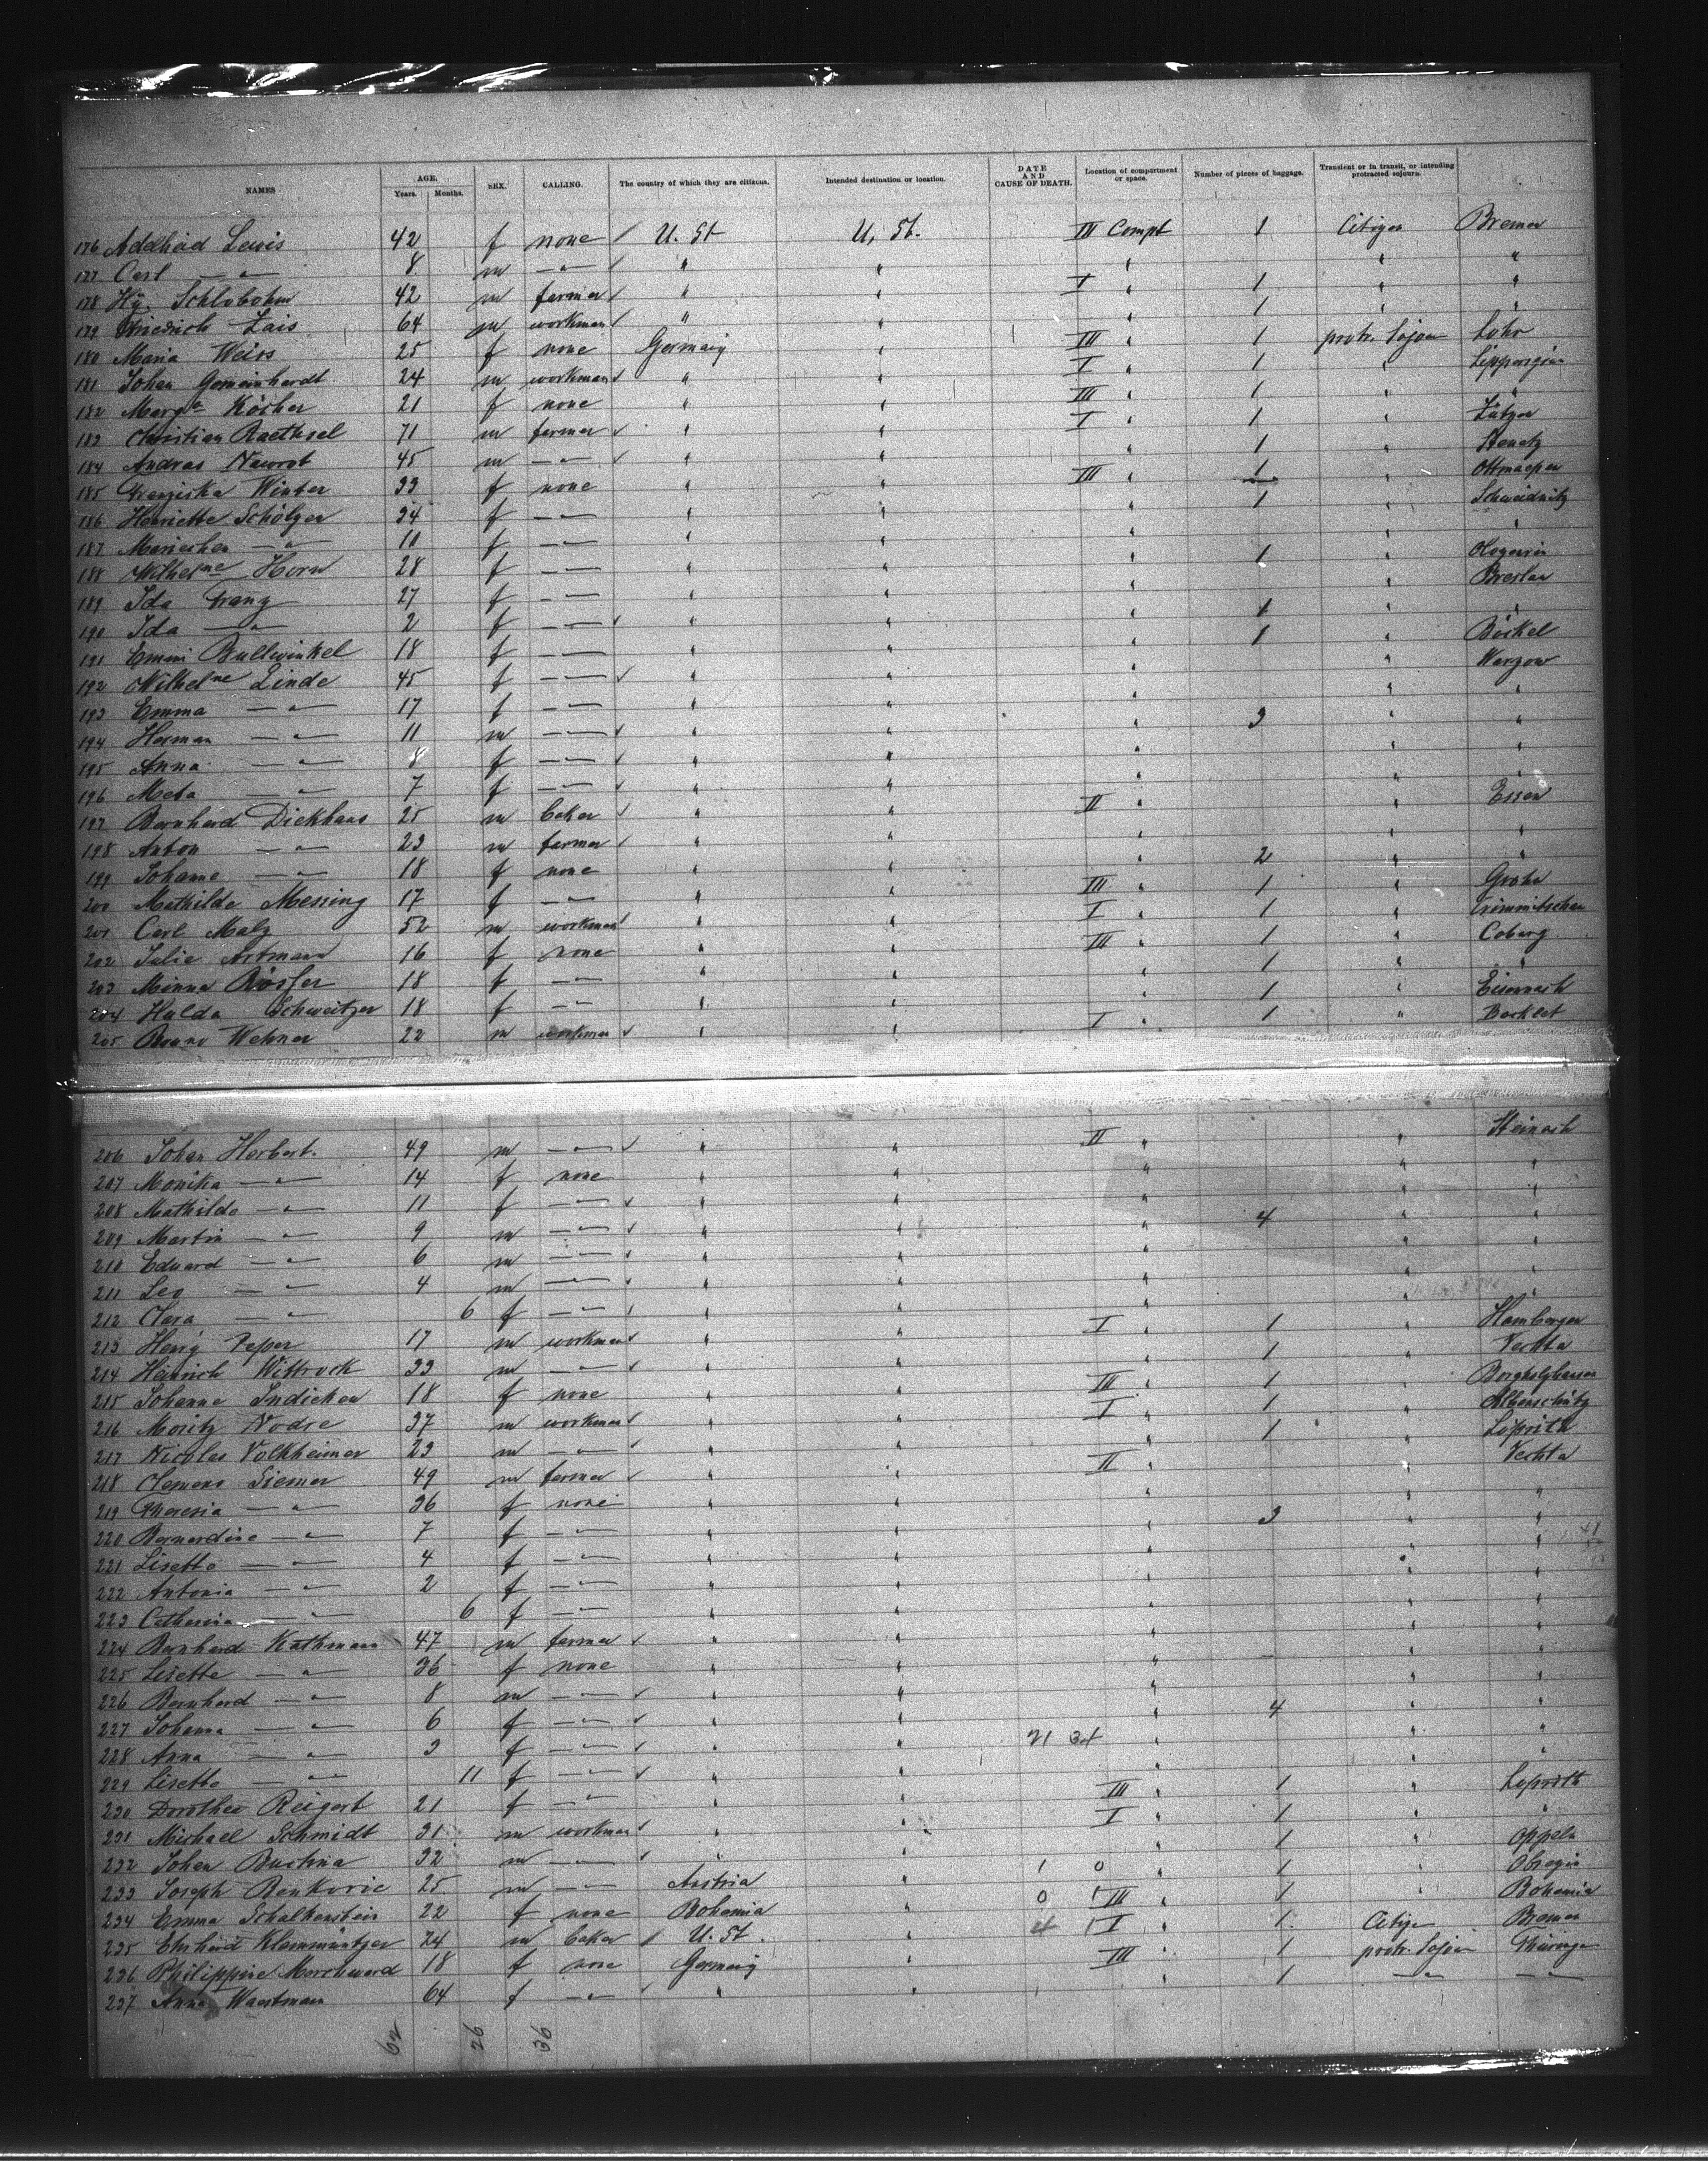 NAMES AGE. Years. Months. SEX. CALLING. The country of which they are citizens. Intended destination or location. DATE AND CAUSE OF DEATH. Location of compartment or space. Number of pieces of baggage. Transient or in transit, or intending protracted sojourn.
176 Adelheid Lewis 42 f none U. St U. St. III Compt 1 Citizen Bremen
177 Carl — " — 8 m — " — " " " " "
178 Hy. Schlobohm 42 m farmer " " I " 1 " "
179 Friedrich Lais 64 m workman " " " 1 " "
180 Maria Weiss 25 f none Germany " III " 1 protr. Sojou Lohr
181 Johan Gemeinhardt 24 m workman " " I " 1 "
182 Marga Köcher 21 f none " " III " 1 " "
183 Christian Raethsel 71 m farmer " " I " 1 " Lützen
184 Andras Nawrot 45 m — " — " " " 1 "
185 Franziska Winter 33 f none " " III " 1 "
186 Henriette Schölzer 34 f — " — " " " 1 " Schweidnitz
187 Mariechen — " — 10 f — " — " " " " "
188 Wilhelne Horn 28 f — " — " " " 1 "
189 Ida Franz 27 f — " — " " " " Breslau
190 Ida — " — 2 f — " — " " " 1 " "
191 Emmi Bullwinkel 18 f — " — " " " 1 " Böckel
192 Wilhelne Linde 45 f — " — " " " " Warzow
193 Emma — " — 17 f — " — " " " " "
194 Herman — " — 11 m — " — " " " 3 " "
195 Anna — " — 8 f — " — " " " " "
196 Meta — " — 7 f — " — " " " " "
197 Bernhard Dickhaus 25 m baker " " II " " Essen
198 Anton — " — 23 m farmer " " " " "
199 Johanne — " — 18 f none " " " 2 " "
200 Mathilde Messing 17 f — " — " " III " 1 "
201 Carl Malz 52 m workman " " I " 1 " Crimmitschau
202 Julie Artmann 16 f none " " III " 1 " Coburg
203 Minna Rösler 18 f — " — " " " 1 " "
204 Hulda Schweitzer 18 f — " — " " " 1 " Eisenach
205 Bruno Wehner 22 m workman " " I " 1 " Bocklet
206 Johan Herbert 49 m — " — " " II " " Steinach
207 Monika — " — 14 f none " " " " "
208 Mathilde — " — 11 f — " — " " " " "
209 Martin — " — 9 m — " — " " " 4 " "
210 Eduard — " — 6 m — " — " " " " "
211 Leo — " — 4 m — " — " " " " "
212 Clara — " — 6 f — " — " " " " "
213 Henry Peper 17 m workman " " I " 1 Hambergen
214 Heinrich Wittrock 33 m — " — " " " 1 " Vechta
215 Johanne Indicken 18 f none " " III " 1 " Borgholzhausen
216 Moritz Nodre 37 m workman " " I " 1 "
217 Nicolas Volkheimer 23 m — " — " " " 1 "
218 Clemens Siemer 49 m farmer " " II " " Vechta
219 Theresia — " — 36 f none " " " " "
220 Bernardine — " — 7 f — " — " " " 3 " "
221 Lisette — " — 4 f — " — " " " " "
222 Antonia — " — 2 f — " — " " " " "
223 Catharina — " — 6 f — " — " " " " "
224 Bernhard Kathmann 47 m farmer " " " " "
225 Lisette — " — 36 f none " " " " "
226 Bernhard — " — 8 m — " — " " " " "
227 Johanna — " — 6 f — " — " " " 4 " "
228 Anna — " — 3 f — " — " " 21 34 " " "
229 Lisette — " — 11 f — " — " " " " "
230 Dorothea Reigert 21 f — " — " " III " 1 "
231 Michael Schmidt 31 m workman " " I " 1 " "
232 Johan Buchna 32 m — " — " " " 1 " Oppeln
233 Joseph Benkovic 25 m — " — Austria " 1 0 " 1 "
234 Emma Schalkenstein 22 f none Bohemia " 0 1 III " 1 " Bohemia
235 Ehrhard Klemmüntzer 24 m baker U. St. " I " 1 Citizn Bremen
236 Philippine Marchward 18 f none Germany " III " 1 protr. Sojou Thüringe
237 Anna Waestman 64 f — " — " " " 1 — " — — " —
62 26 36